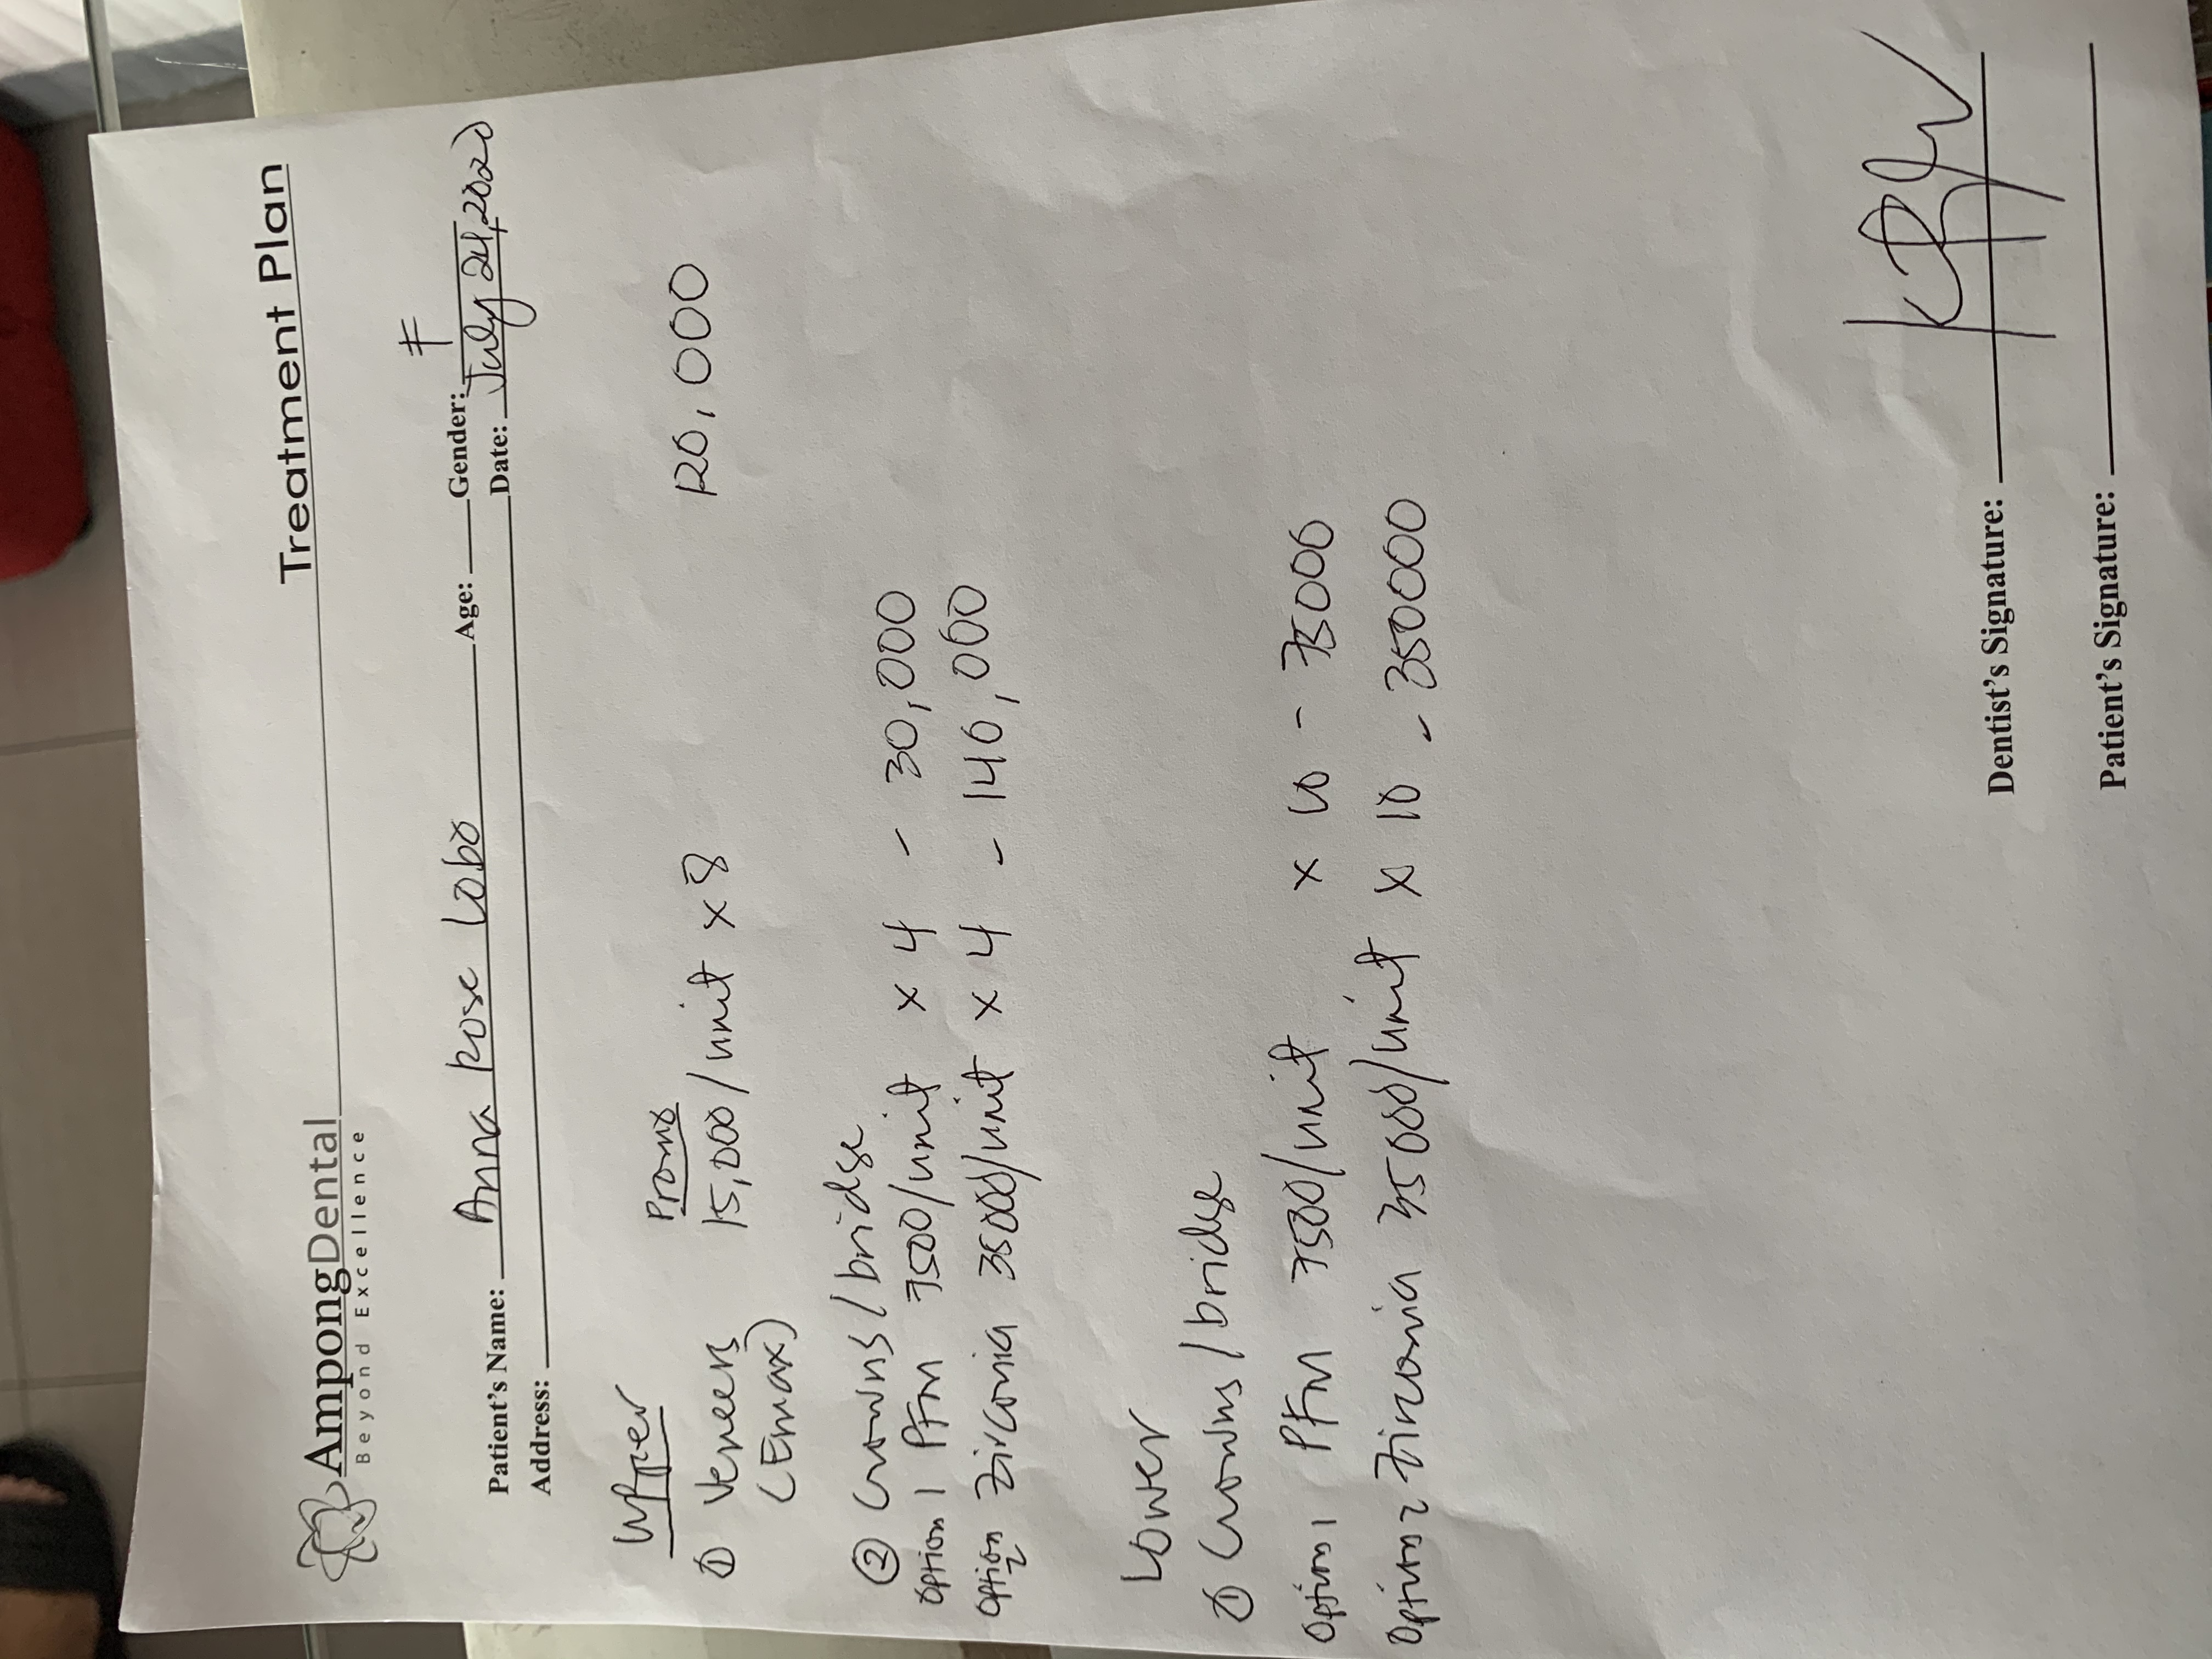 Treatment Plan
AmpongDental
Beyond Excellence
Patient's Name: Anna Rose Lobo Age: Gender: F
Address: Date: July 24, 2020
Upper
Promo
① Veneers 15,000/unit x 8 120,000
(Emax)
② Crowns/bridge
Option 1 PFM 7500/unit x 4 - 30,000
Option 2 Zirconia 35000/unit x 4 - 140,000
Lower
① Crowns/bridge
Option 1 PFM 7500/unit x 10 - 75000
Option 2 Zirconia 35000/unit x 10 - 350000
Dentist's Signature:
Patient's Signature: